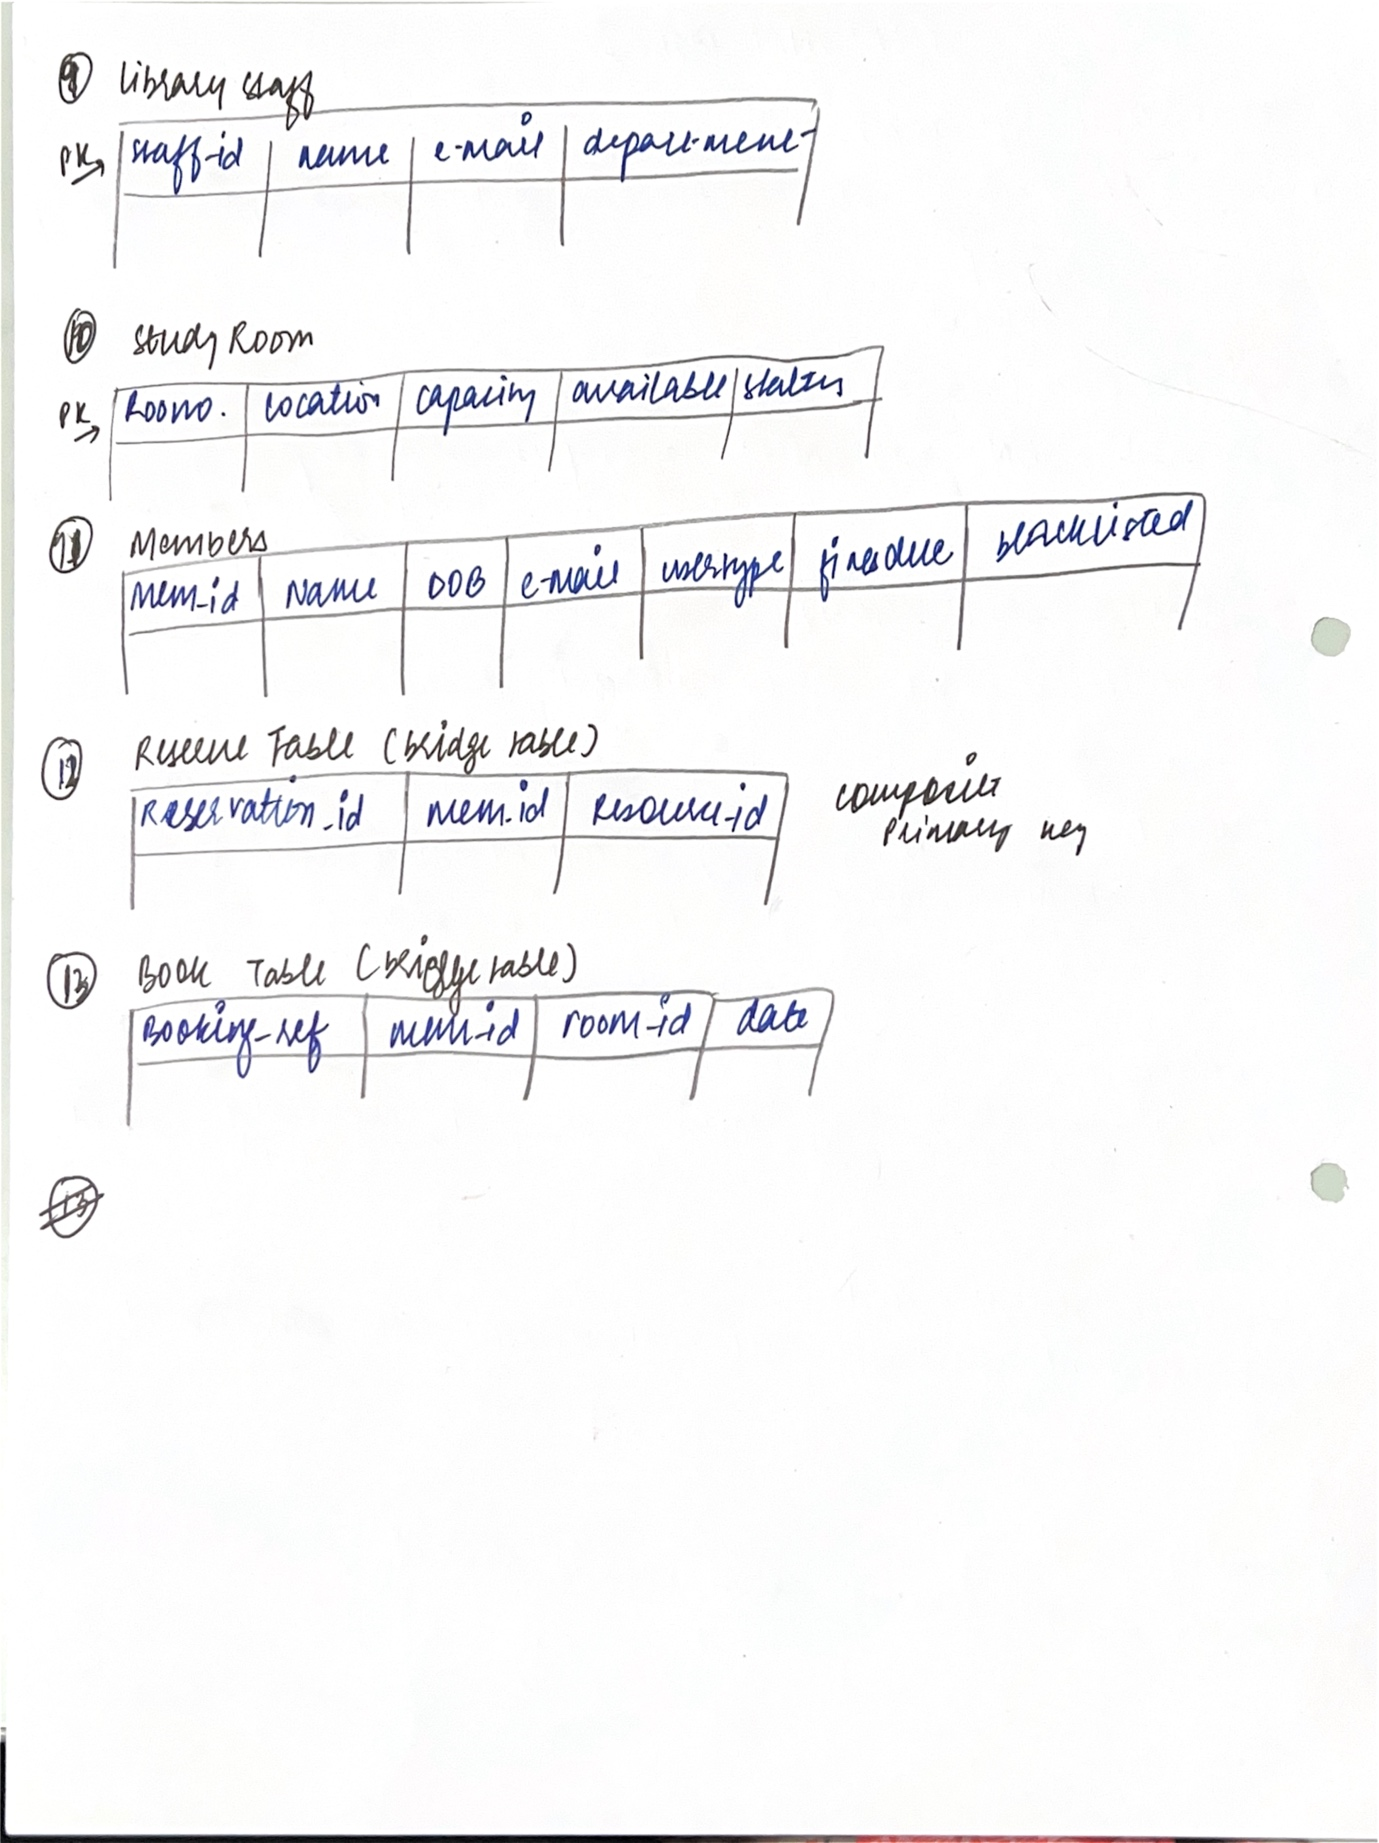 9 Library staff
PK staff-id name e-mail department
10 Study Room
PK Roomno. Location capacity available status
11 Members
Mem_id Name DOB e-mail usertype finesdue blacklisted
12 Reserve Table (bridge table)
Reservation_id mem_id Resource_id
composite
Primary key
13 Book Table (bridge table)
Booking_ref mem_id room_id date
13